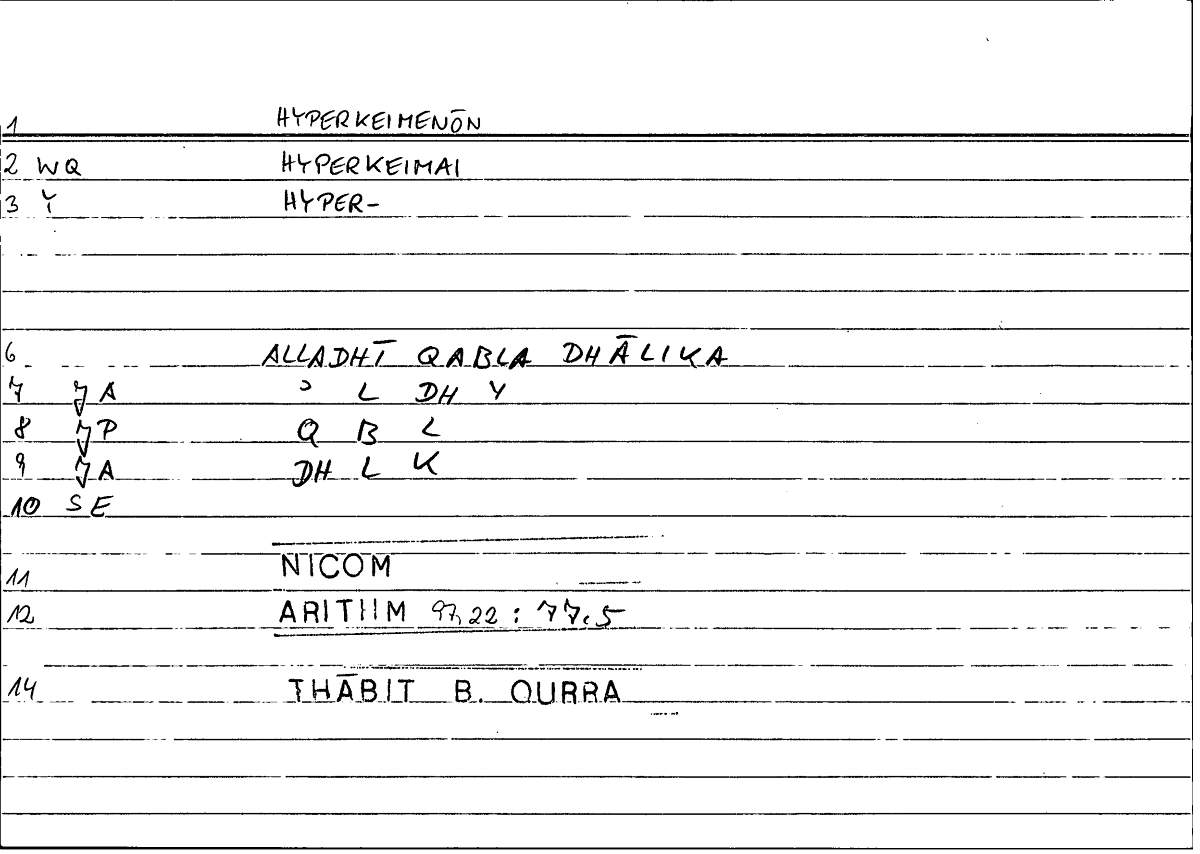 1 HYPERKEIMENŌN
2 WQ HYPERKEIMAI
3 Y HYPER-
6 ALLADHĪ QABLA DHĀLIKA
7 JA ʾ L DH Y
8 JP Q B L
9 JA DH L K
10 SE
11 NICOM
12 ARITHM 97,22 : 77.5
14 THĀBIT B. QURRA